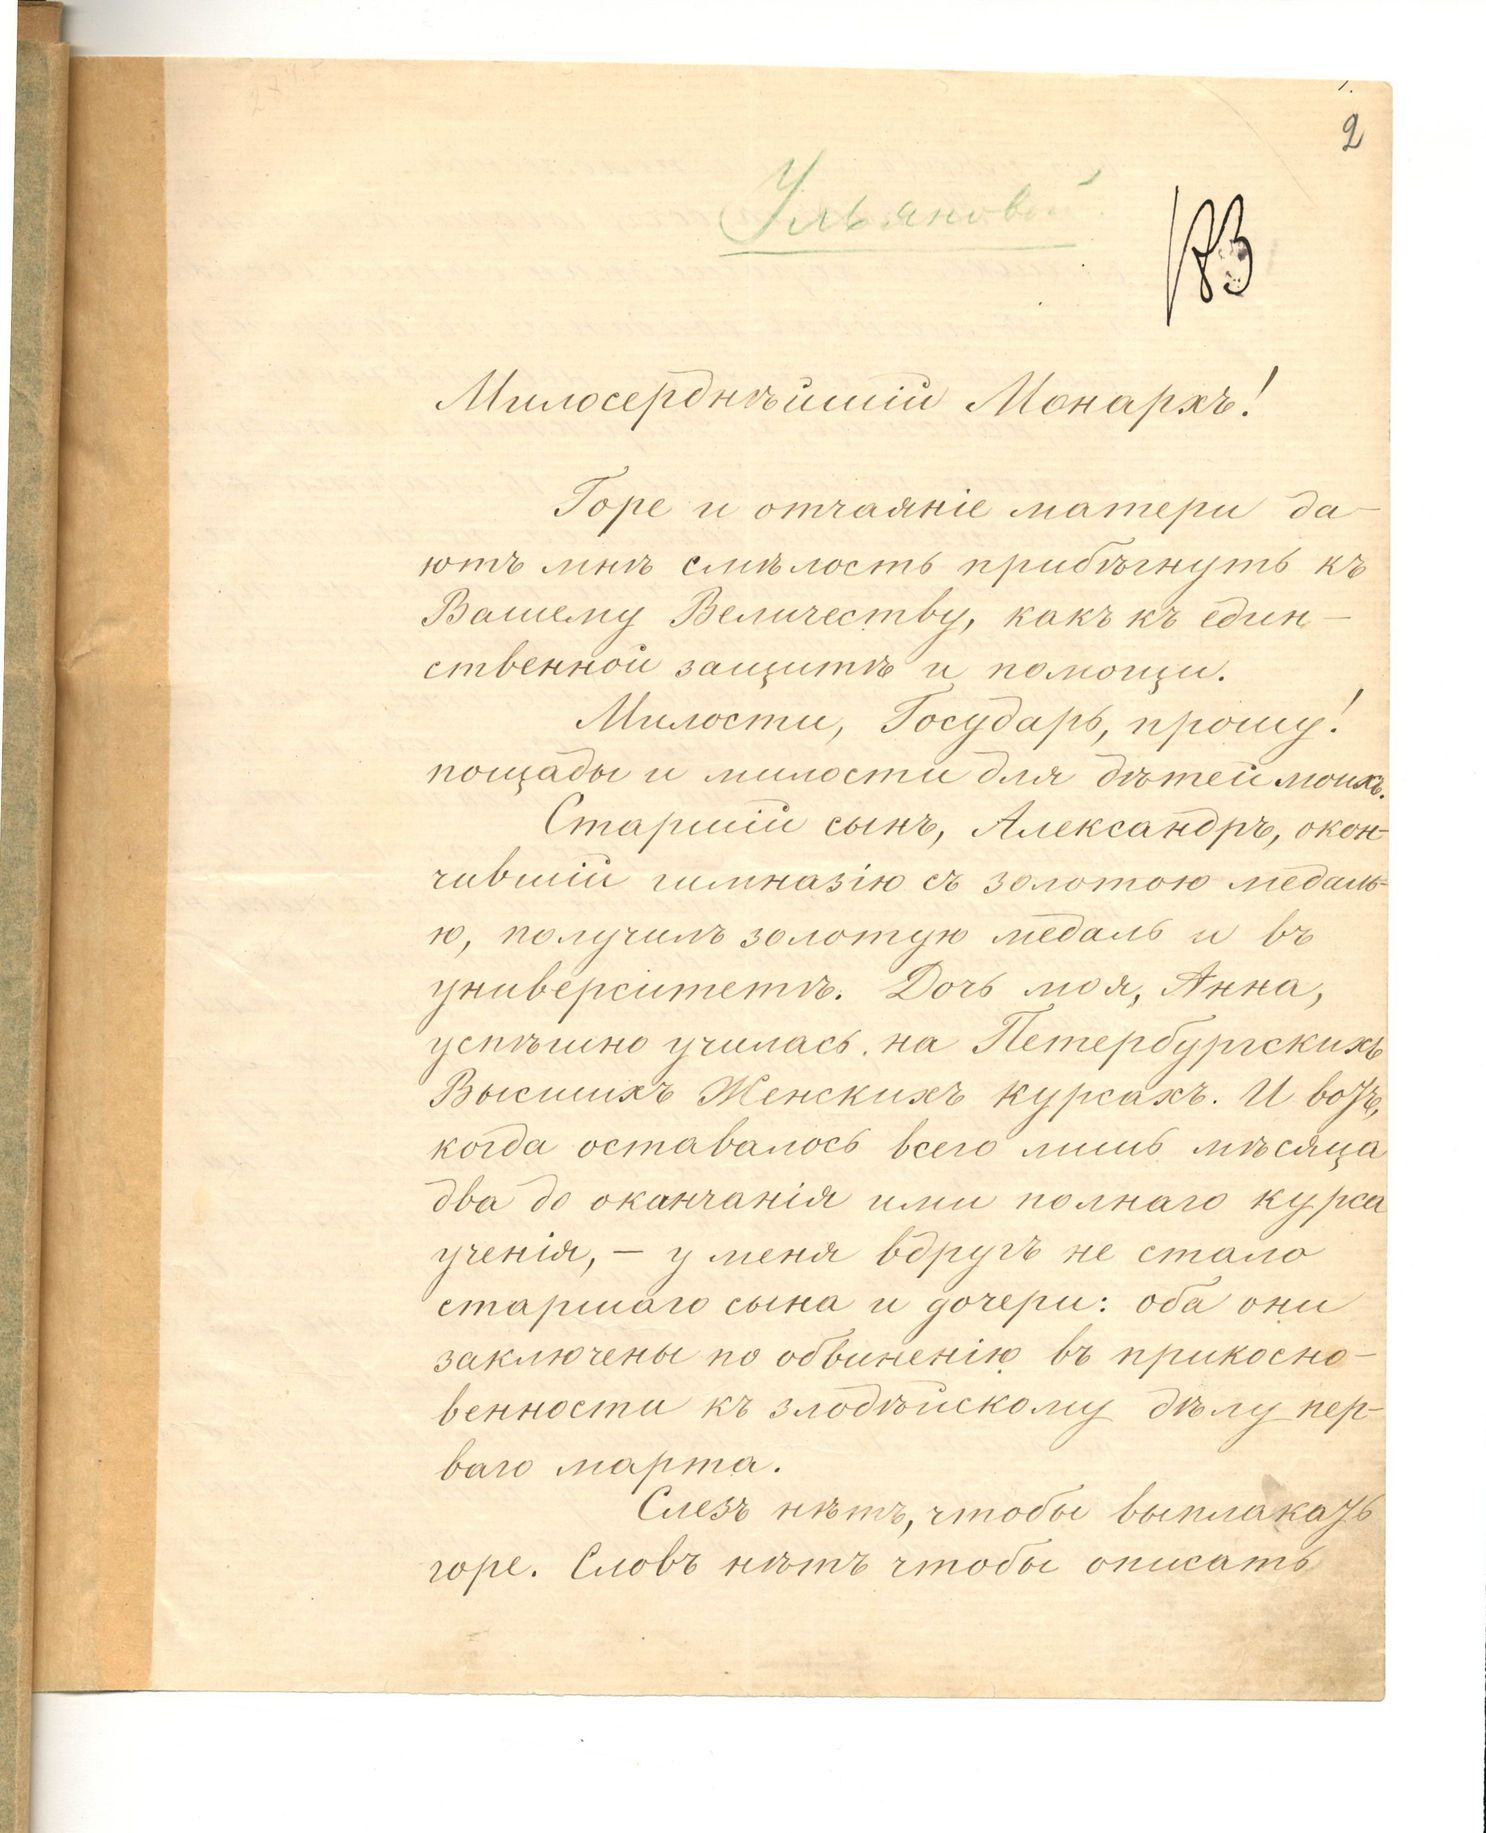 2
Ульяновой
183
Милосерднѣйшій Монархъ!
Горе и отчаяніе матери да-
ютъ мнѣ смѣлость прибѣгнуть къ
Вашему Величеству, какъ къ един-
ственной защитѣ и помощи.
Милости, Государь, прошу!
пощады и милости для дѣтей моихъ.
Старшій сынъ, Александръ, окон-
чившій гимназію съ золотою медаль-
ю, получилъ золотую медаль и въ
университетѣ. Дочь моя, Анна,
успѣшно училась на Петербургскихъ
Высшихъ Женскихъ курсахъ. И вотъ,
когда оставалось всего лишь мѣсяца
два до оканчанія ими полнаго курса
ученія, – у меня вдругъ не стало
старшаго сына и дочери: оба они
заключены по обвиненію въ прикосно-
венности къ злодѣйскому дѣлу пер-
ваго марта.
Слезъ нѣтъ, чтобы выплакать
горе. Словъ нѣтъ чтобы описать